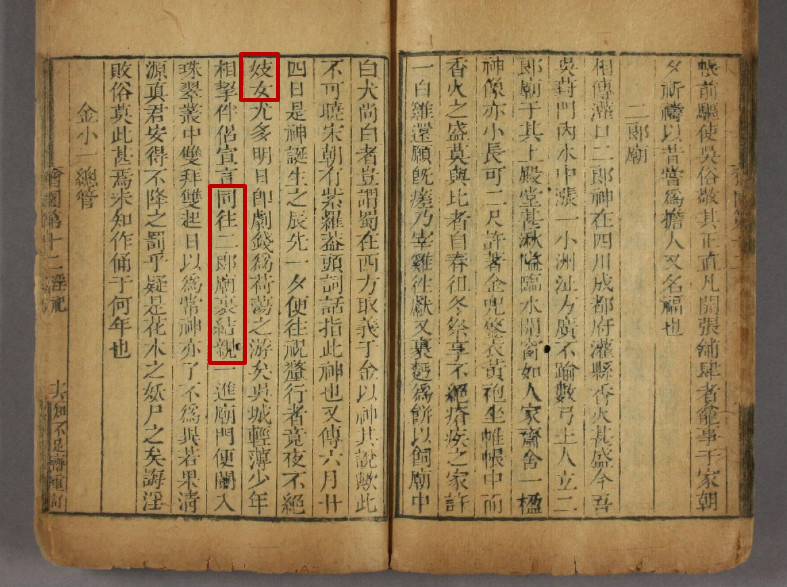 帳前驅使吳俗敬其正直凡開張鋪肆者龕事于家朝
夕祈禱以昔嘗為擔人又名福也
二郎廟
相傳灌口二郎神在四川成都府灌縣香火甚盛今吾
吳葑門內水中漲一小洲沚方廣不踰數弓土人立二
郎廟于其上殿堂甚湫隘臨水開窗如人家齋舍一楹
神像亦小長可二尺許著金兜鍪衣黃袍坐帷帳中而
香火之盛莫與比者自春徂冬祭享不絕瘡疾之家許
一白雞還願既痊乃宰雞往獻又裹麪為餅以飼廟中
白犬尚白者豈謂蜀在西方取義于金以神其說歟此
不可曉宋朝有紫羅蓋頭詞話指此神也又傳六月廿
四日是神誕生之辰先一夕便往祝釐行者竟夜不絕
妓女尤多明日即劇錢為荷蕩之游矣吳城輕薄少年
相挈伴侶宣言同往二郎廟裏結親一進廟門便闌入
珠翠叢中雙拜雙起日以為常神亦了不為異若果清
源真君安得不降之罰乎疑是花木之妖尸之矣誨淫
敗俗莫此甚焉未知作俑于何年也
金小一總管
獪園第十二淫祀
知不足齋重訂